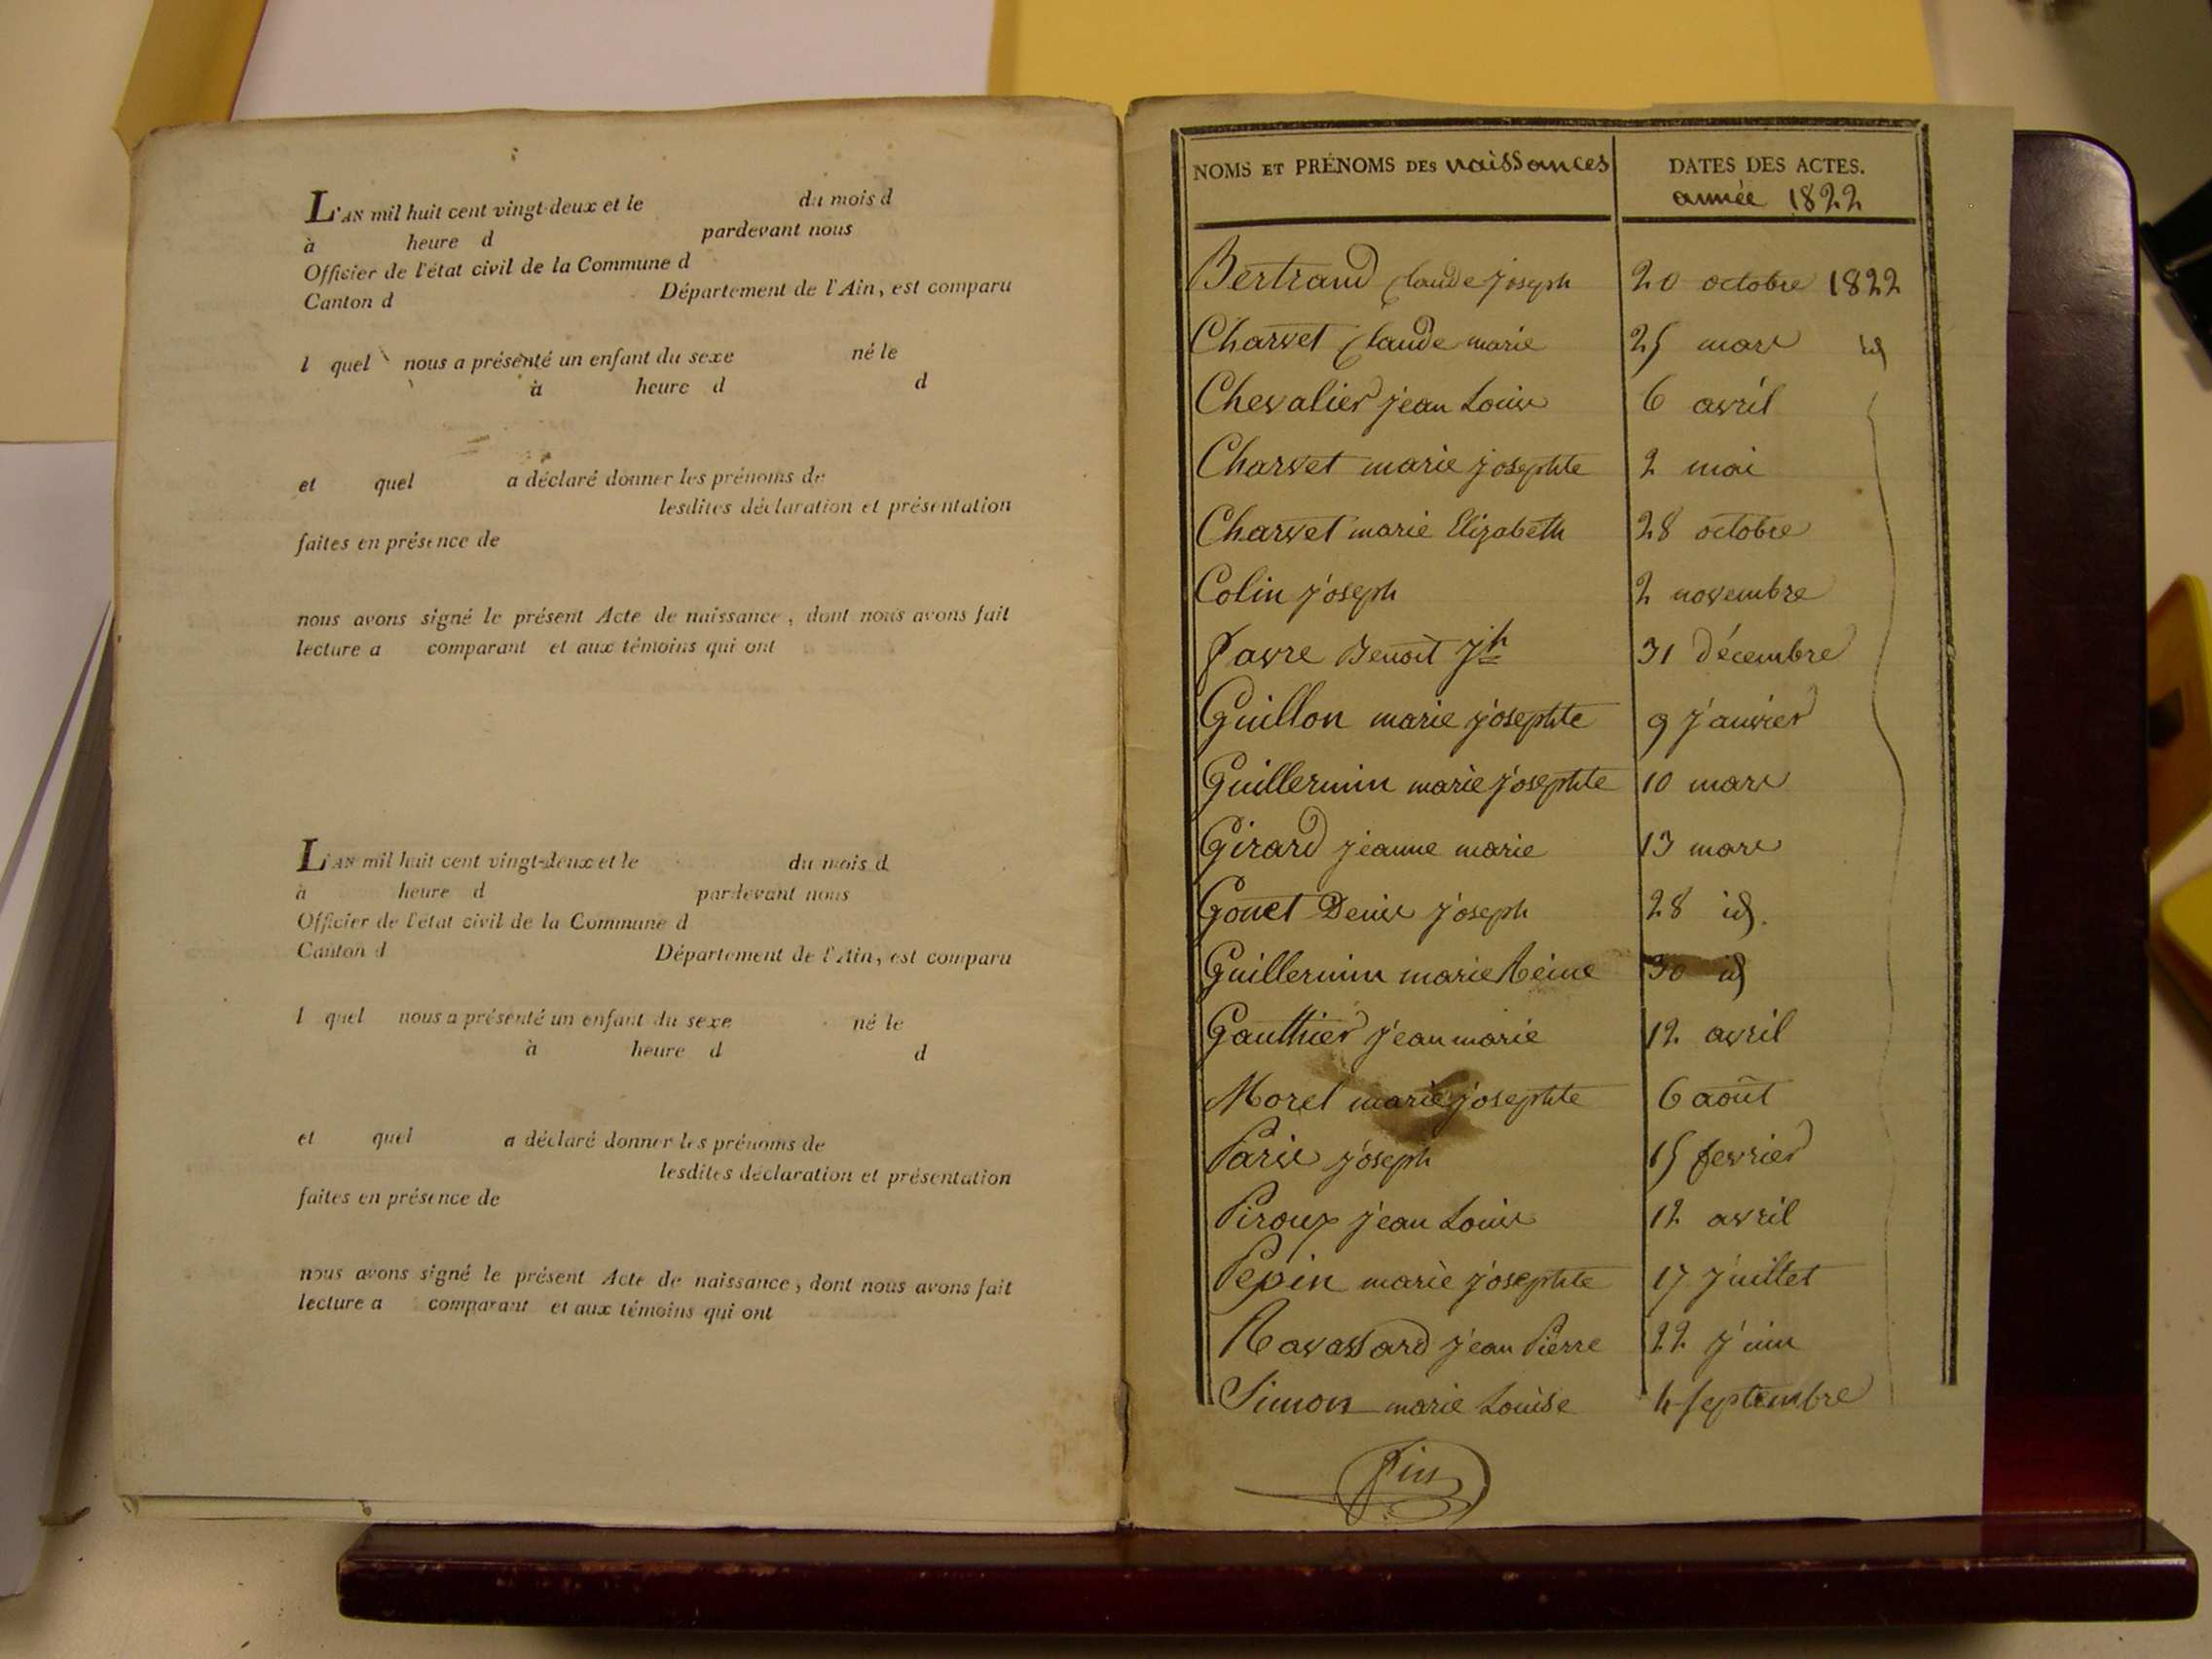 L'AN mil huit cent vingt-deux et le du mois d
à heure d pardevant nous
Officier de l'état civil de la Commune d
Canton d Département de l'Ain, est comparu
l quel nous a présenté un enfant du sexe né le
à heure d d
et quel a déclaré donner les prénoms de
lesdites déclaration et présentation
faites en présence de
nous avons signé le présent Acte de naissance, dont nous avons fait
lecture a comparant et aux témoins qui ont
L'AN mil huit cent vingt-deux et le du mois d
à heure d pardevant nous
Officier de l'état civil de la Commune d
Canton d Département de l'Ain, est comparu
l quel nous a présenté un enfant du sexe né le
à heure d d
et quel a déclaré donner les prénoms de
lesdites déclaration et présentation
faites en présence de
nous avons signé le présent Acte de naissance, dont nous avons fait
lecture a comparant et aux témoins qui ont
NOMS ET PRÉNOMS DES naissances DATES DES ACTES.
année 1822
Bertrand Claude joseph 20 octobre 1822
Charvet Claude marie 25 mars id
Chevalier jean Louis 6 avril
Charvet marie josephte 2 mai
Charvet marie Elizabeth 28 octobre
Colin joseph 2 novembre
Favre Benoit Jh 31 Décembre
Guillon marie josephte 9 janvier
Guillermin marie josephte 10 mars
Girard jeanne marie 13 mars
Gouet Denis joseph 28 id.
Guillermin marie Reine 30 id
Gauthier jean marie 12 avril
Morel marie josephte 6 août
Paris joseph 15 fevrier
Piroux jean Louis 12 avril
Pepin marie josephte 17 juillet
Ravassard jean Pierre 22 juin
Simon marie Louise 4 septembre
Fin